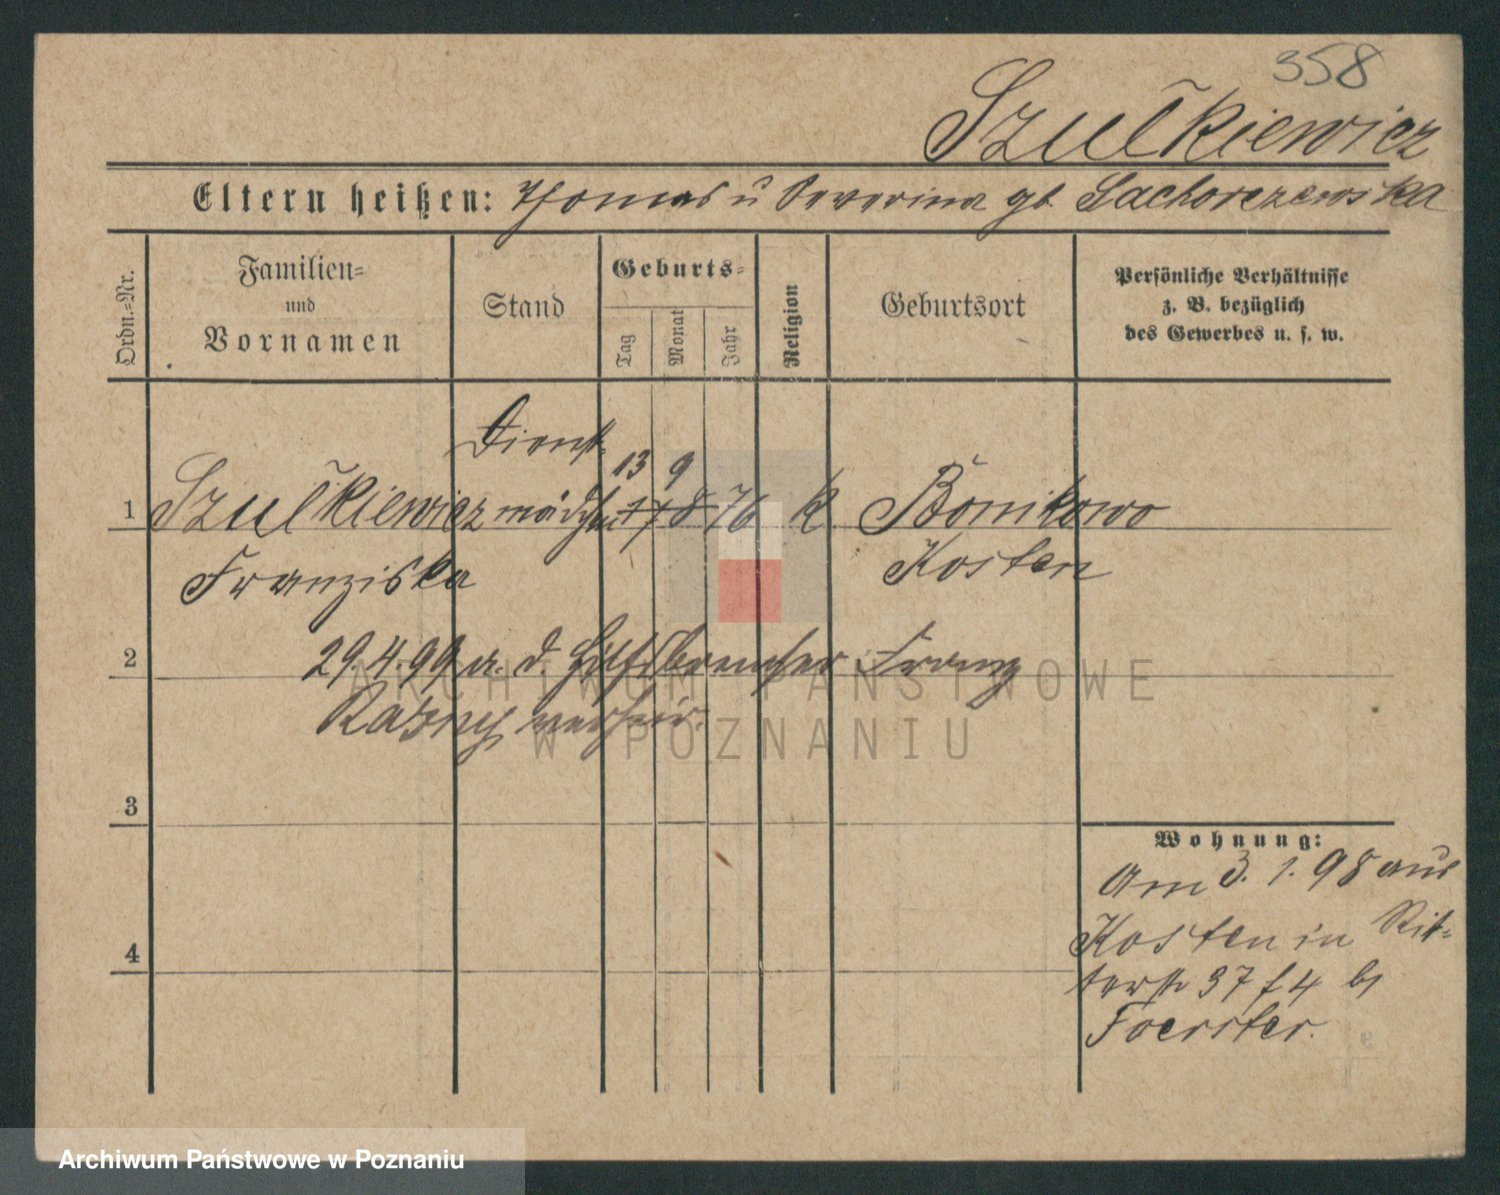 358
Szulkiewicz
Eltern heißen: Thomas u Severina gb Lachorczewska
Ordn.-Nr.
Familien-
und
Vornamen
Stand
Geburts-
Tag
Monat
Jahr
Religion
Geburtsort
Persönliche Verhältnisse
z. B. bezüglich
des Gewerbes u. s. w.
Dienst-
13 9
1 Szulkiewicz mädchen 17 8 76 k Bonikowo
Franziska Kosten
2 29.4.99 a. d. Hilfsbremser Franz
Razny verheir.
ARCHIWUM PAŃSTWOWE
W POZNANIU
3
Wohnung:
Am 3.1.98 aus
Kosten in Rit-
4
terstr 37 f 4 b/
Foerster.
Archiwum Państwowe w Poznaniu